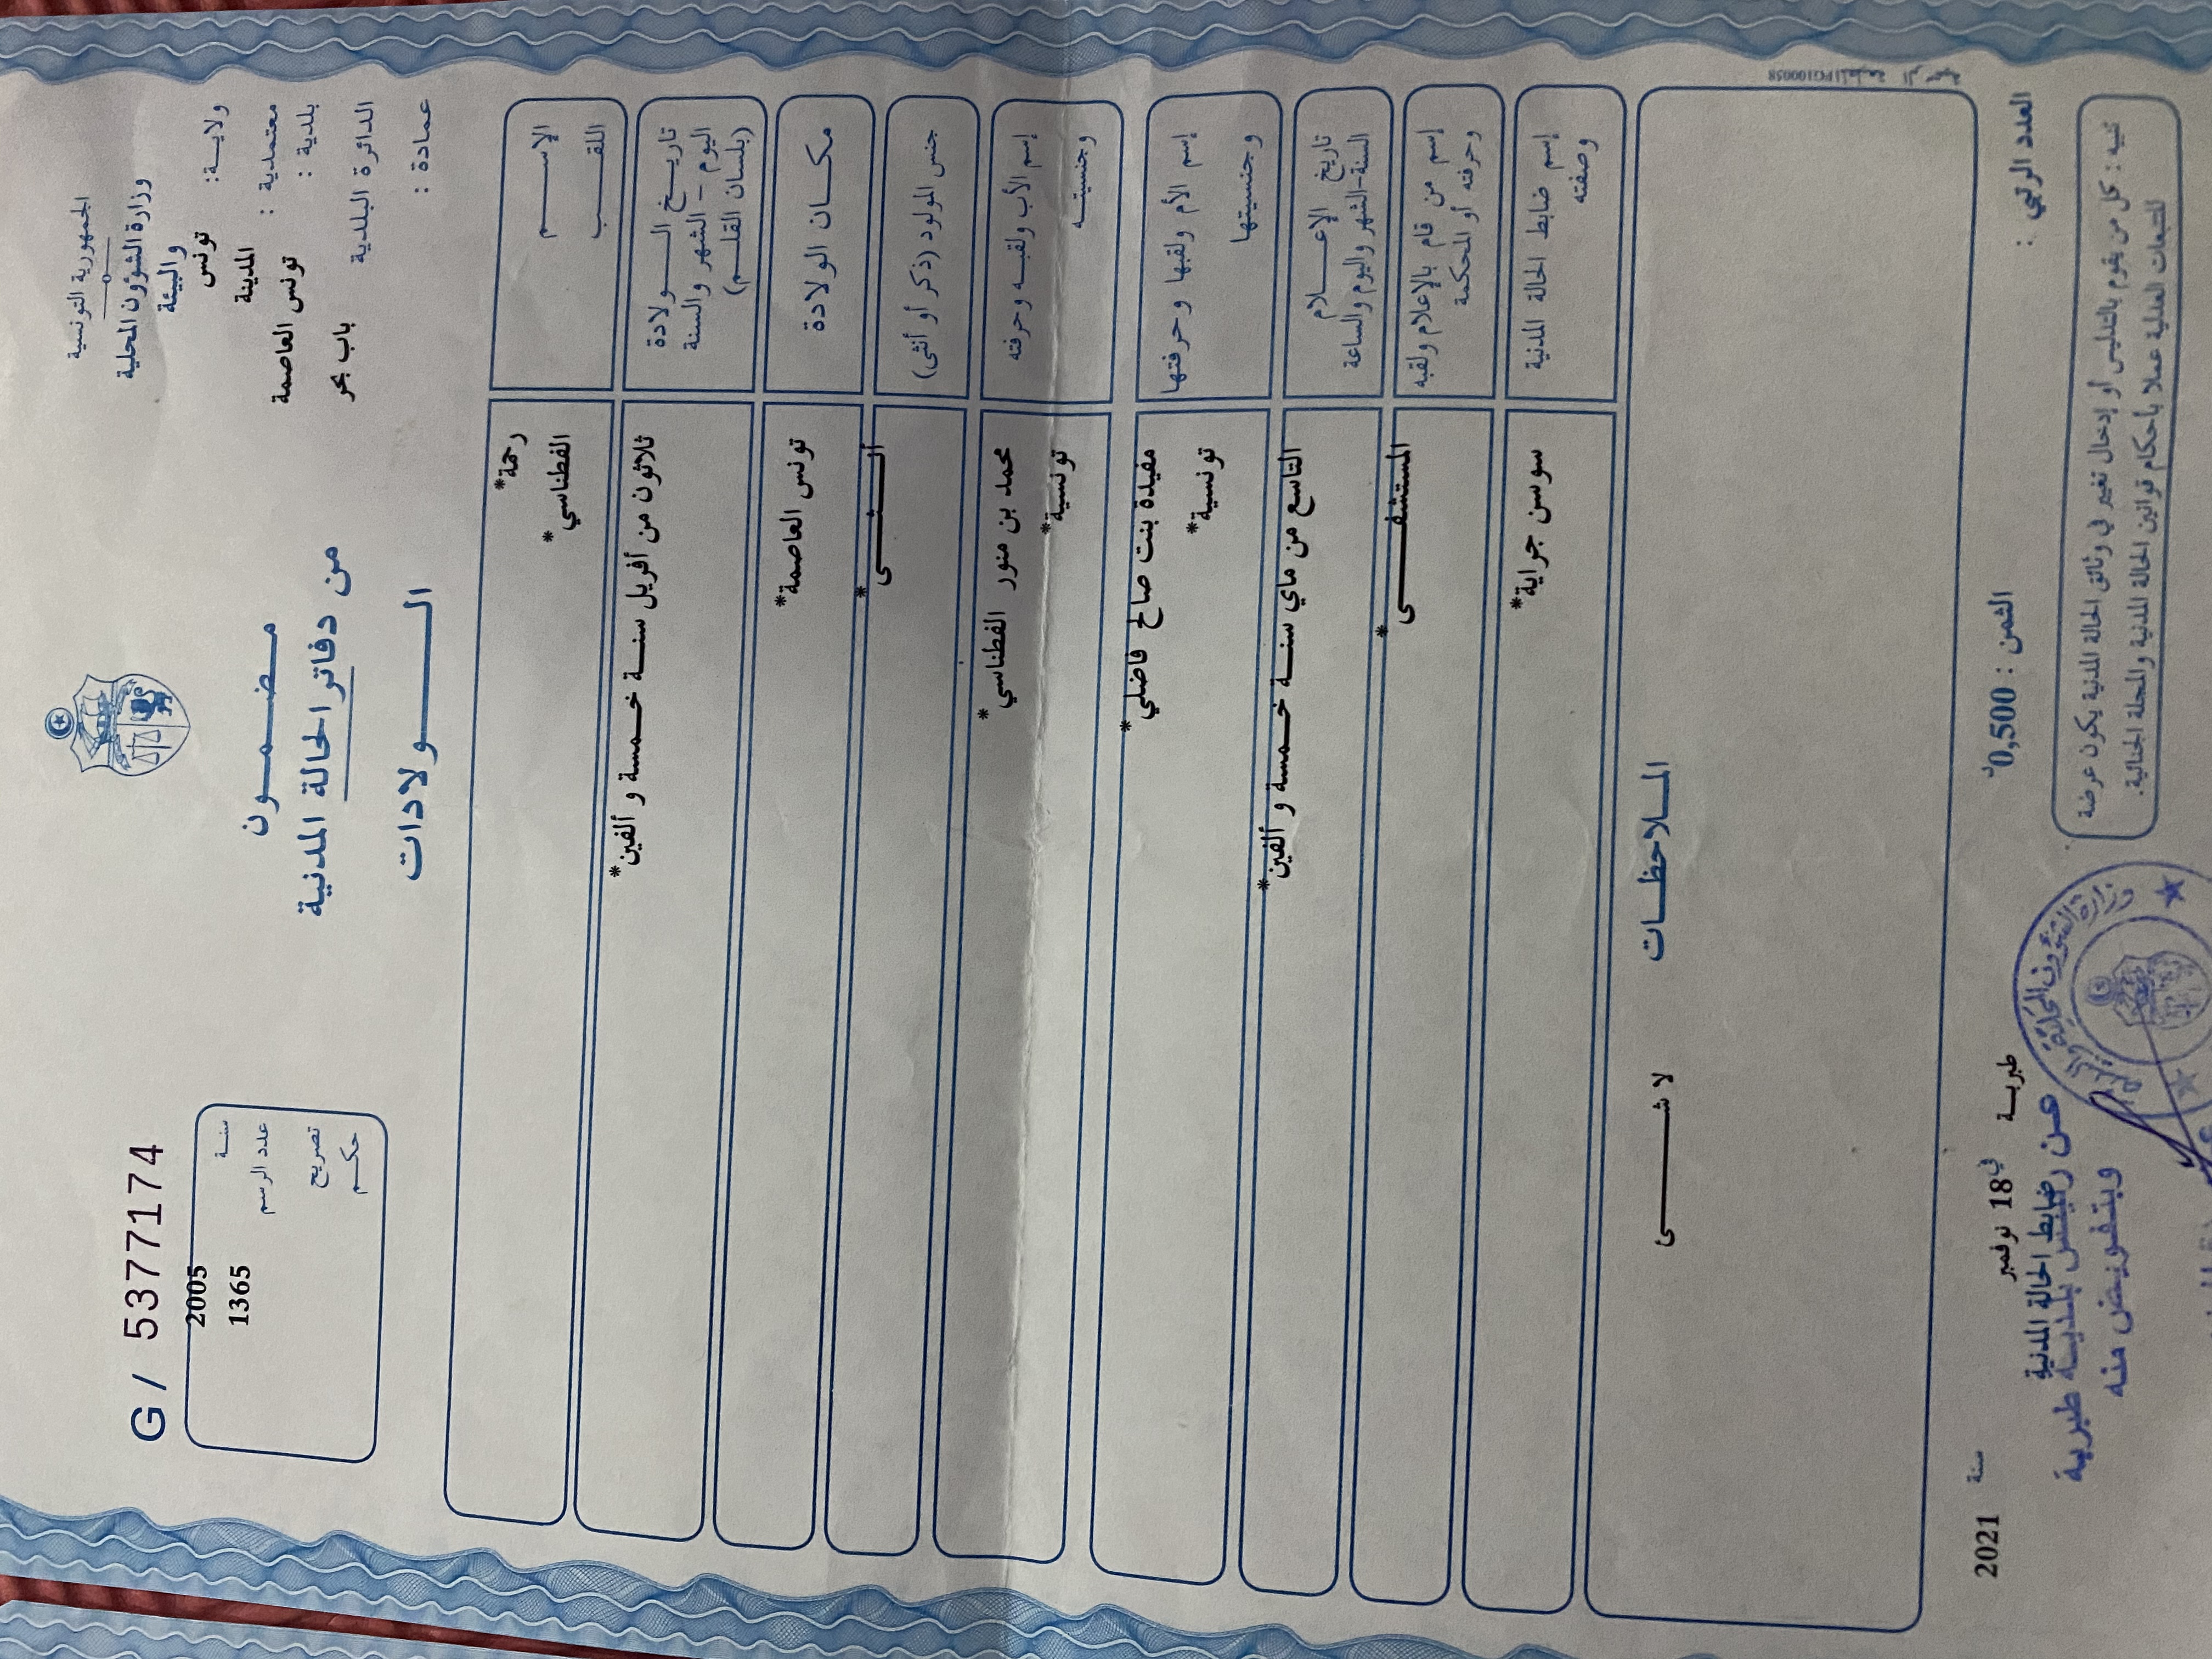 الجمهورية التونسية
وزارة الشؤون المحلية
والبيئة
ولاية: تونس
معتمدية : المدينة
بلدية : تونس العاصمة
الدائرة البلدية باب بحر
عمادة :
مضمون
من دفاتر الحالة المدنية
الولادات
G/ 5377174
سنة 2005
عدد الرسم 1365
تصريح
حكم
الإسم رحمة*
اللقب الفطناسي*
تاريخ الولادة ثلاثون من أفريل سنة خمسة و ألفين*
اليوم - الشهر والسنة
(بلسان القلم)
مكان الولادة تونس العاصمة*
جنس المولود (ذكر أو أنثى) أنثى*
إسم الأب ولقبه وحرفته محمد بن منور الفطناسي*
وجنسيته تونسية*
إسم الأم ولقبها وحرفتها مفيدة بنت صالح فاضلي*
وجنسيتها تونسية*
تاريخ الإعلام التاسع من ماي سنة خمسة و ألفين*
السنة-الشهر واليوم والساعة
إسم من قام بالإعلام ولقبه المستشفى*
وحرفته أو المحكمة
إسم ضابط الحالة المدنية سوسن جراية*
وصفته
الملاحظات
لا شى
العدد الرتبي :
الثمن : 0,500د
طبربة في 18 نوفمبر سنة 2021
ضابط الحالة المدنية
عن رئيس بلدية طبربة
وبتفويض منه
تنبيه : كل من يقوم بالتدليس أو إدخال تغيير في وثائق الحالة المدنية يكون عرضة
للتتبعات العدلية عملا بأحكام قوانين الحالة المدنية والمجلة الجنائية.
وزارة الشؤون المحلية